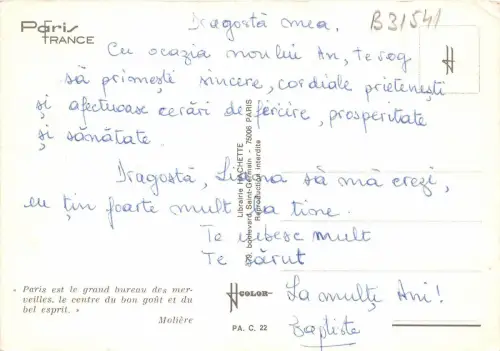 Paris
FRANCE
B31541
Dragostă mea,
Cu ocazia noului An, te rog
să primești sincere, cordiale prietenești
și afectuoase cerări de fericire, prosperitate
și sănătate.
Dragostă, să mă crezi,
eu țin foarte mult la tine.
Te iubesc mult
Te sărut
La mulți Ani!
Baptiste
Librairie HACHETTE
79, boulevard Saint-Germain - 75006 PARIS
Reproduction interdite
« Paris est le grand bureau des mer-
veilles, le centre du bon goût et du
bel esprit. »
Molière
COLOR
PA. C. 22